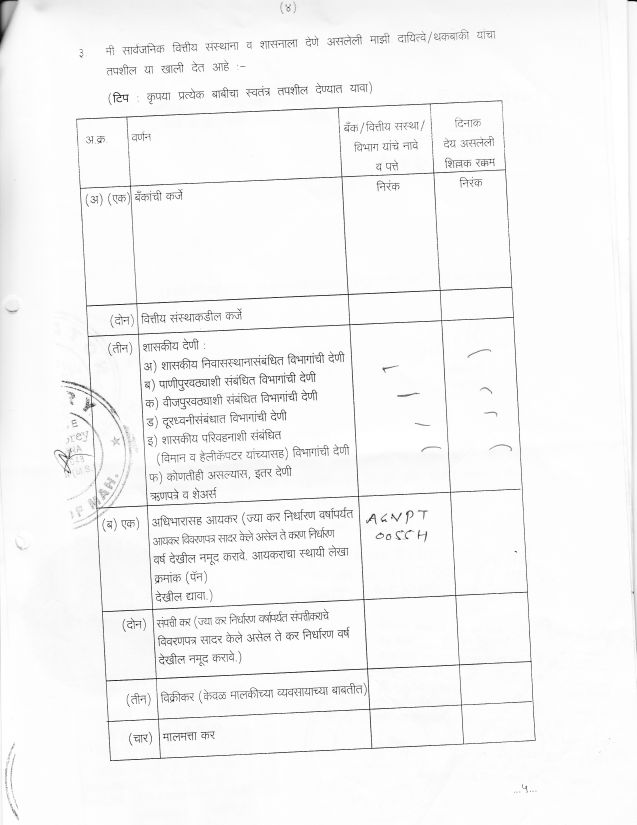 (४)
३ मी सार्वजनिक वित्तीय संस्थाना व शासनाला देणे असलेली माझी दायित्वे/थकबाकी यांचा
तपशील या खाली देत आहे :-
(टिप : कृपया प्रत्येक बाबीचा स्वतंत्र तपशील देण्यात यावा)
अ.क्र. वर्णन
बँक/वित्तीय संस्था/
विभाग यांचे नावे
व पत्ते
दिनाक
देय असलेली
शिल्लक रक्कम
(अ) (एक) बँकांची कर्जे निरंक निरंक
(दोन) वित्तीय संस्थाकडील कर्जे
(तीन) शासकीय देणी :
अ) शासकीय निवासस्थानासंबंधित विभागांची देणी
ब) पाणीपुरवठ्याशी संबंधित विभागांची देणी
क) वीजपुरवठ्याशी संबंधित विभागांची देणी
ड) दूरध्वनीसंबधात विभागांची देणी
इ) शासकीय परिवहनाशी संबंधित
(विमान व हेलीकॅपटर यांच्यासह) विभागांची देणी
फ) कोणतीही असल्यास, इतर देणी
ऋणपत्रे व शेअर्स
(ब) एक) अधिभारासह आयकर (ज्या कर निर्धारण वर्षापर्यंत
आयकर विवरणपत्र सादर केले असेल ते करण निर्धारण
वर्ष देखील नमूद करावे. आयकराचा स्थायी लेखा
क्रमांक (पॅन)
देखील द्यावा.)
AGNPT
(दोन) संपत्ती कर (ज्या कर निर्धारण वर्षापर्यंत संपत्तीकराचे
विवरणपत्र सादर केले असेल ते कर निर्धारण वर्ष
देखील नमूद करावे.)
(तीन) विक्रीकर (केवळ मालकीच्या व्यवसायाच्या बाबतीत)
(चार) मालमत्ता कर
...५...
OF MAH.